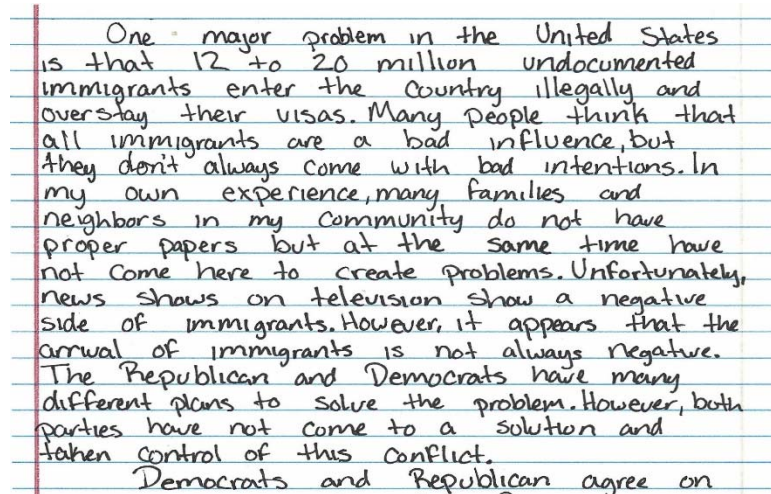 One major problem in the United States
is that 12 to 20 million undocumented
immigrants enter the country illegally and
overstay their visas. Many people think that
all immigrants are a bad influence, but
they don't always come with bad intentions. In
my own experience, many families and
neighbors in my community do not have
proper papers but at the same time have
not come here to create problems. Unfortunately,
news shows on television show a negative
side of immigrants. However, it appears that the
arrival of immigrants is not always negative.
The Republican and Democrats have many
different plans to solve the problem. However, both
parties have not come to a solution and
taken control of this conflict.
Democrats and Republican agree on